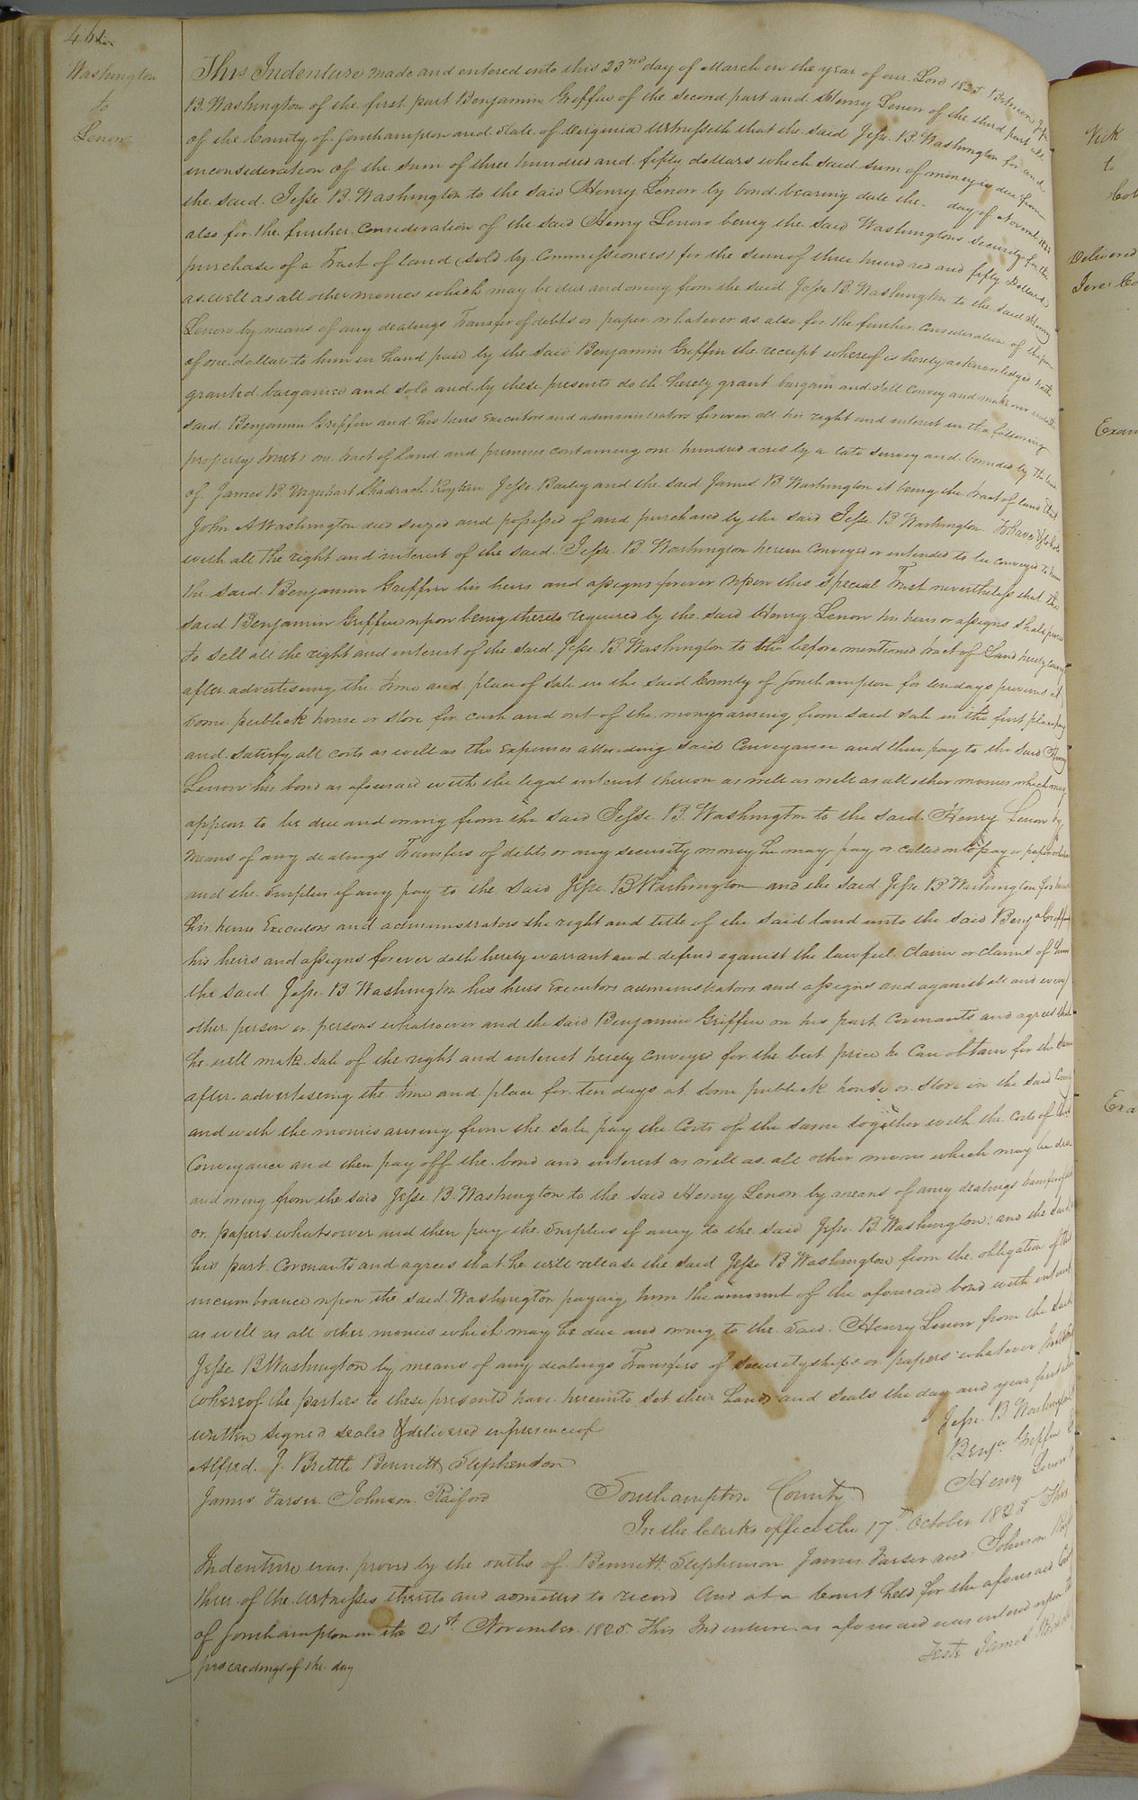 Washington
to
Lenow
This Indenture made and entered into this 23nd day of March in the year of our Lord 1825 Between Jesse
B. Washington of the first part Benjamin Griffin of the second part and Henry Lenow of the third part all
of the County of Southampton and State of Virginia Witnesseth that the said Jesse B. Washington for and
inconsideration of the sum of three hundred and fifty dollars which said sum of money is due from
the said Jesse B. Washington to the said Henry Lenow by bond bearing date the day of November
also for the further consideration of the said Henry Lenow being the said Washingtons security for the
purchase of a Tract of land (sold by Commissioners) for the sum of three hundred and fifty Dollars
as well as all other monies which may be due and owing from the said Jesse B. Washington to the said Henry
Lenow by means of any dealings Transfer of debts or paper whatever as also for the further consideration of the sum
of one dollar to him in hand paid by the said Benjamin Griffin the receipt whereof is hereby acknowledged hath
granted bargained and sold and by these presents doth hereby grant bargain and sell convey and make over unto the
said Benjamin Griffin and his heirs Executors and administrators forever all his right and interest in the following
property (to wit) one tract of land and premises containing one hundred acres by a late survey and bounded by the land
of James B. Urquhart Shadrach Jesse Bailey and the said James B. Washington it being the tract of land that
John A Washington died seized and possessed of and purchased by the said Jesse B Washington To have & to hold
with all the right and interest of the said Jesse B. Washington herein conveyed or intended to be conveyed to him
the said Benjamin Griffin his heirs and assigns forever upon this special Trust nevertheless that the
said Benjamin Griffin upon being thereto required by the said Henry Lenow his heirs or assigns shall proceed
to sell all the right and interest of the said Jesse B. Washington to the before mentioned tract of Land hereby conveyed
after advertising the time and place of sale in the said County of Southampton for ten days previous at
some publick house or store for cash and out of the money arising from said sale in the first place pay
and satisfy all costs as well as the Expenses attending said conveyance and then pay to the said Henry
Lenow his bond as aforesaid with the legal interest thereon as well as well as all other monies which may
appear to be due and owing from the said Jesse B. Washington to the said Henry Lenow by
means of any dealings Transfers of debts or any security money he may pay or called on to pay or paper whatever
and the Surplus if any pay to the said Jesse B Washington and the said Jesse B. Washington for himself
his heirs Executors and administrators the right and title of the said land unto the said Benja Griffin
his heirs and assigns forever doth hereby warrant and defend against the lawful claim or claims of him
the said Jesse B Washington his heirs Executors administrators and assigns and against all and every
other person or persons whatsoever and the said Benjamin Griffin on his part Covenants and agrees that
he will make sale of the right and interest hereby conveyed for the best price he can obtain for the same
after advertising the time and place for ten days at some publick house or store in the said County
and with the monies arising from the sale pay the costs of the same together with the costs of this
Conveyance and then pay off the bond and interest as well as all other monies which may be due
and owing from the said Jesse B. Washington to the said Henry Lenow by means of any dealings transfers
or papers whatsoever and then pay the Surplus if any to the said Jesse B. Washington; and the said
his part Covenants and agrees that he will release the said Jesse B Washington from the obligation of this
incumbrance upon the said Washington paying him the amount of the aforesaid bond with interest
as well as all other monies which may be due and owing to the said Henry Lenow from the said
Jesse B Washington by means of any dealings Transfers of securityships or papers whatever In Witness
whereof the parties to these presents have hereunto set their hands and seals the day and year first above
written signed sealed & delivered in presence of
Jesse B. Washington
Alfred J. Brittle Bennett Stephenson
Benja Griffin
James Vasser Johnson Raiford
Henry Lenow
Southampton County
In the Clerks office the 17th October 1825 This
Indenture was proved by the oaths of Bennett Stephenson James Vasser and Johnson
three of the witnesses thereto and admitted to record And at a Court held for the aforesaid
of Southampton on the 21st November 1825 This Indenture as aforesaid was entered upon the
proceedings of the day
Teste James
Vick
to
Delivered
Exam
Exa